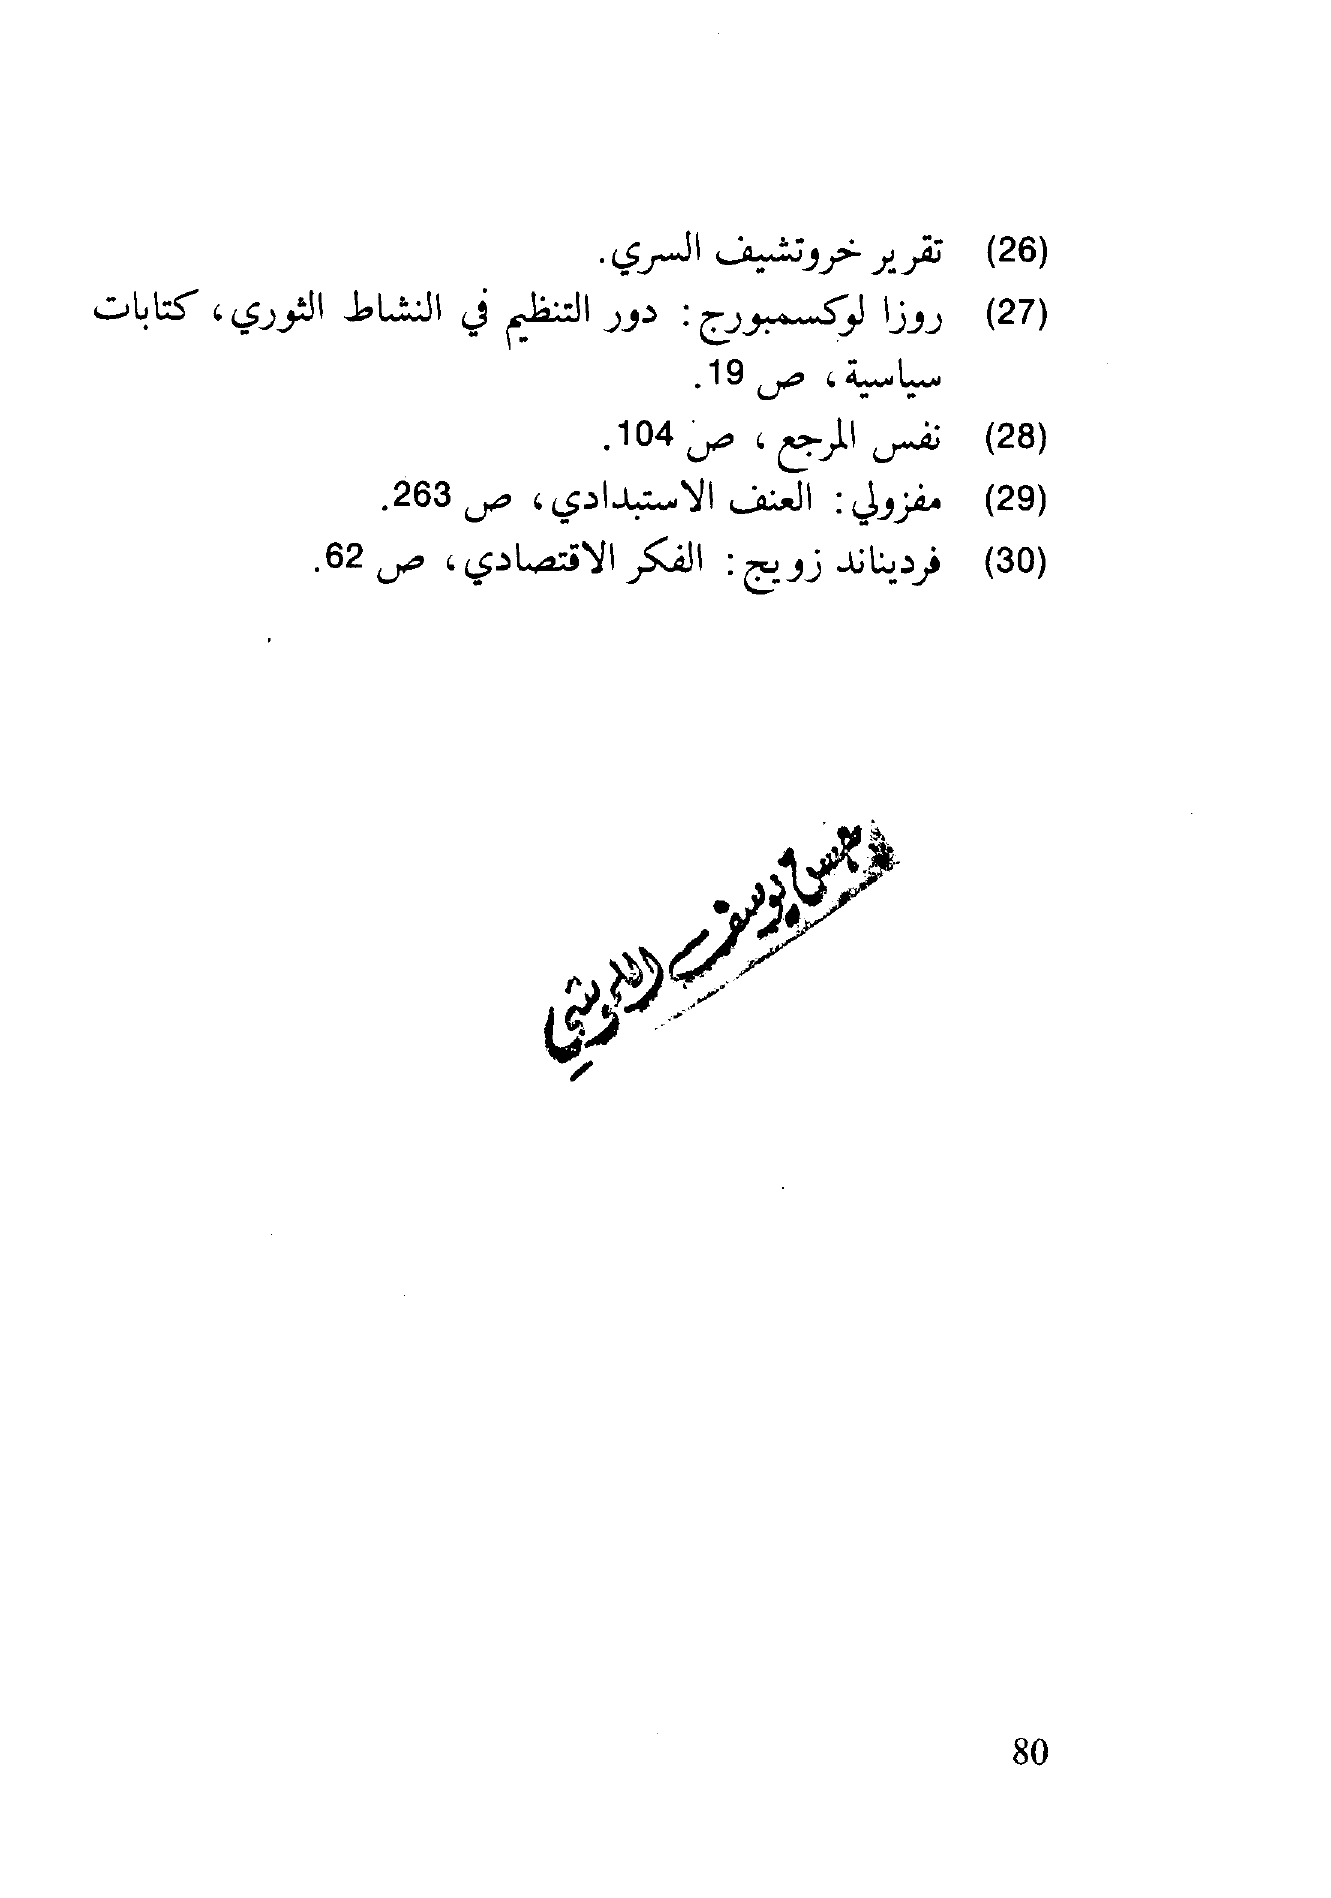 (26) تقرير خروتشيف السري.
(27) روزا لوكسمبورج: دور التنظيم في النشاط الثوري، كتابات
سياسية، ص 19.
(28) نفس المرجع، ص 104.
(29) مفزولي: العنف الاستبدادي، ص 263.
(30) فرديناند زويج: الفكر الاقتصادي، ص 62.
يوسف
80